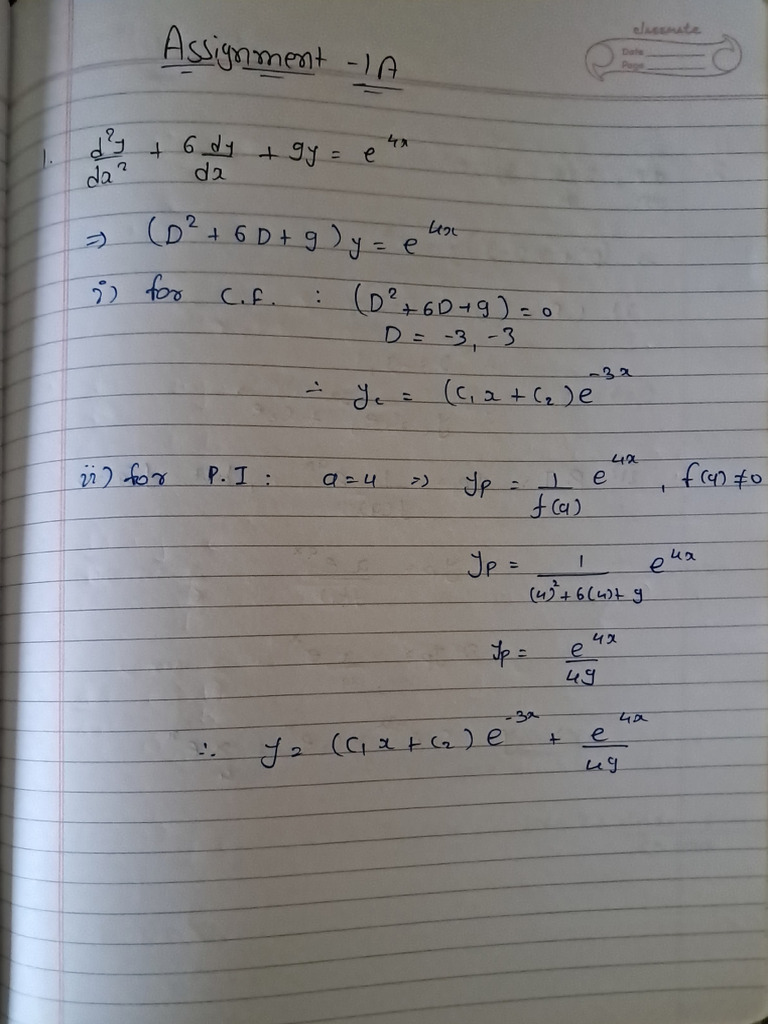 classmate
Date
Page
Assignment - 1A
1. d²y/dx² + 6 dy/dx + 9y = e^4x
⇒ (D² + 6D + 9) y = e^4x
i) for C.F. : (D² + 6D + 9) = 0
D = -3, -3
∴ yc = (C₁x + C₂) e^-3x
ii) for P.I : a = 4 ⇒ yp = 1/f(a) e^4x , f(a) ≠ 0
yp = 1/((4)² + 6(4) + 9) e^4x
yp = e^4x/49
∴ y = (C₁x + C₂) e^-3x + e^4x/49